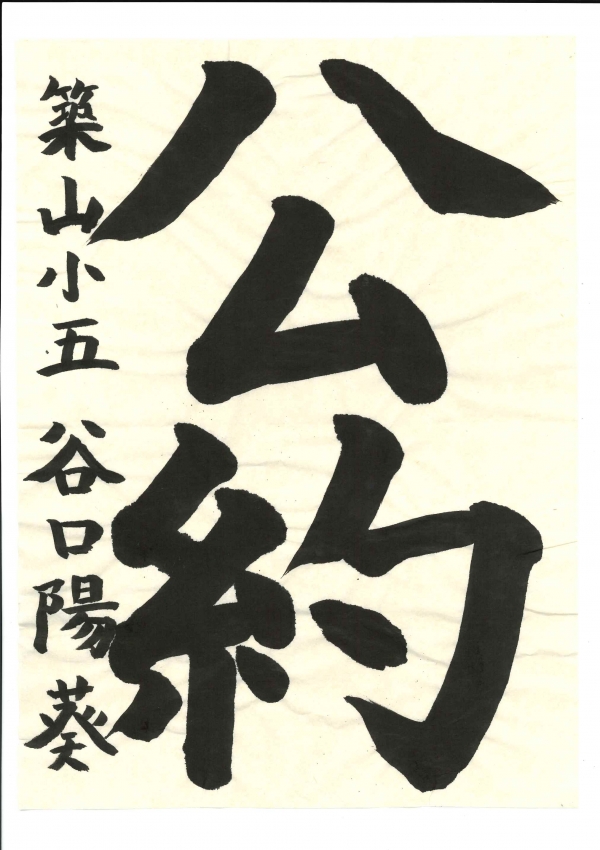 公約
築山小五 谷口陽葵